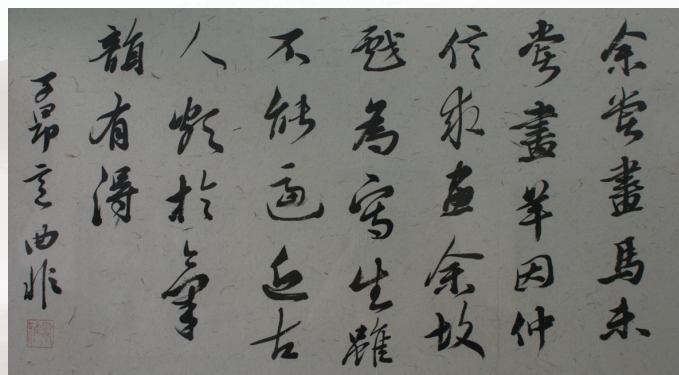 余尝畫馬未
嘗畫羊因仲
信求畫余故
戲為寫生雖
不能逼近古
人頗於氣
韻有得
子昂意 曲非